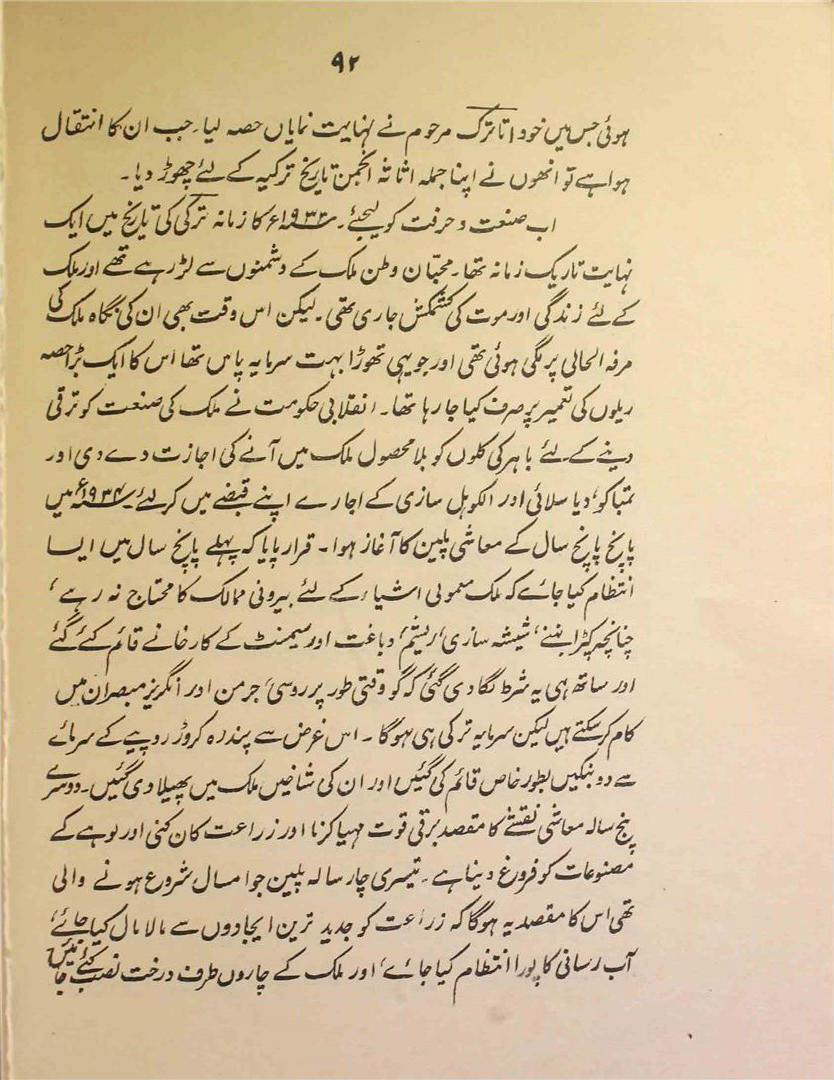 ۹۲
ہوئی جس میں خود اتاترک مرحوم نے نہایت نمایاں حصہ لیا۔ جب ان کا انتقال
ہوا ہے تو انھوں نے اپنا جملہ اثاثہ انجمن تاریخ ترکیہ کے لئے چھوڑ دیا۔
اب صنعت و حرفت کو لیجئے۔ کا زمانہ ترکی کی تاریخ میں ایک
نہایت تاریک زمانہ تھا۔ محبّان وطن ملک کے دشمنوں سے لڑ رہے تھے اور ملک
کے لئے زندگی اور موت کی کشمکش جاری تھی۔ لیکن اس وقت بھی ان کی نگاہ ملک کی
مرفہ الحالی پر لگی ہوئی تھی اور جو یہی تھوڑا بہت سرمایہ پاس تھا اس کا ایک بڑا حصہ
ریلوں کی تعمیر پر صرف کیا جا رہا تھا۔ انقلابی حکومت نے ملک کی صنعت کو ترقی
دینے کے لئے باہر کی کلوں کو بلا محصول ملک میں آنے کی اجازت دے دی اور
تمباکو، دیا سلائی اور الکوہل سازی کے اجارے اپنے قبضے میں کر لئے۔ ۱۹۳۴ء میں
پانچ پانچ سال کے معاشی پلین کا آغاز ہوا۔ قرار پایا کہ پہلے پانچ سال میں ایسا
انتظام کیا جائے کہ ملک معمولی اشیاء کے لئے بیرونی ممالک کا محتاج نہ رہے،
چنانچہ کپڑا بننے، شیشہ سازی، ریشم، دباغت اور سیمنٹ کے کارخانے قائم کئے گئے
اور ساتھ ہی یہ شرط لگا دی گئی کہ گو وقتی طور پر روسی، جرمن اور انگریز مبصر ان میں
کام کر سکتے ہیں لیکن سرمایہ ترکی ہی ہوگا۔ اس غرض سے پندرہ کروڑ روپیے کے سرمائے
سے دو بنکیں بطور خاص قائم کی گئیں اور ان کی شاخیں ملک میں پھیلا دی گئیں۔ دوسرے
پنج سالہ معاشی نقشے کا مقصد برقی قوت مہیا کرنا اور زراعت کان کنی اور لوہے کے
مصنوعات کو فروغ دینا ہے۔ تیسری چار سالہ پلین جو امسال شروع ہونے والی
تھی اس کا مقصد یہ ہوگا کہ زراعت کو جدید ترین ایجادوں سے مالا مال کیا جائے،
آب رسانی کا پورا انتظام کیا جائے، اور ملک کے چاروں طرف درخت نصب کئے جائیں